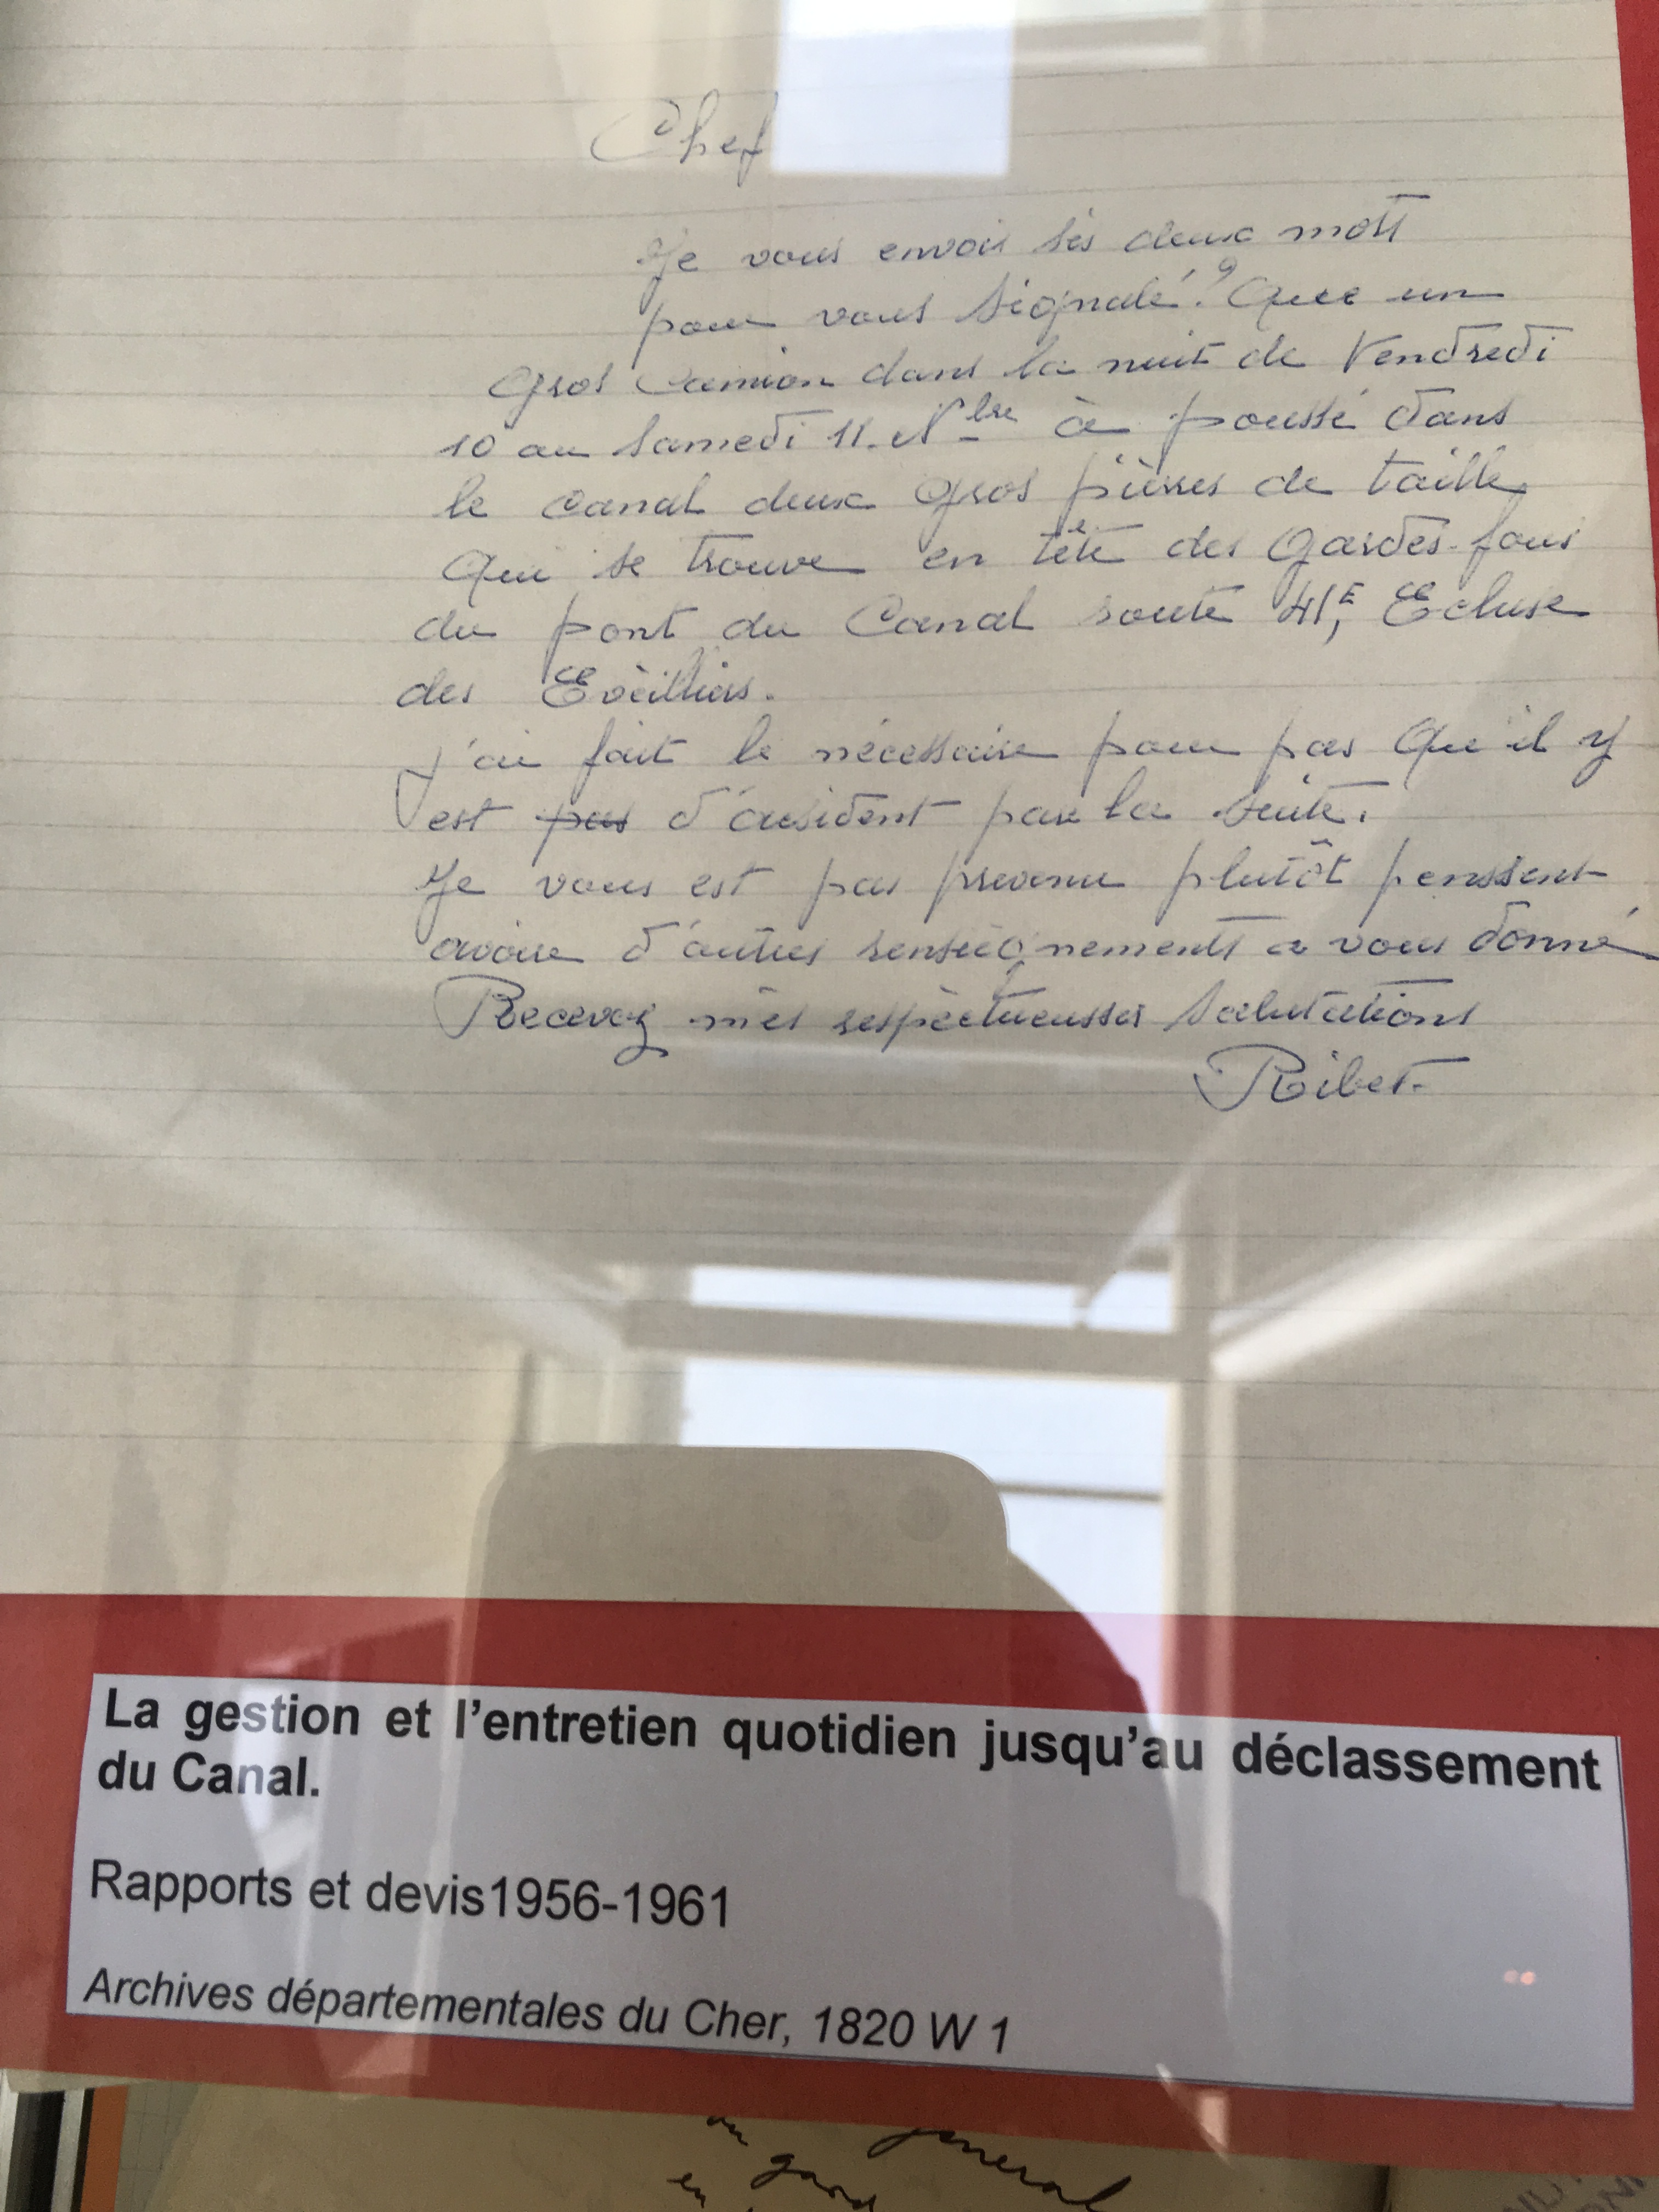 Chef
Je vous envois sès deux mots
pour vous signalé! Que un
Gros camion dans la nuit de Vendredi
10 au Samedi 11. Nbre à poussé dans
le canal deux Gros pièrres de taille,
Qui se trouve en tête des Gardes-fous
du pont du Canal route 41E, Ecluse
des Evèilliers.
J'ai fait le nécessaire pour pas Qu'il y
est pas d'àusident par la suite.
Je vous est pas prevenu plutôt penssent
avoire d'autres renseignements a vous donné
Recevez mès respèctueusses Salutations
Ribet.
La gestion et l'entretien quotidien jusqu'au déclassement
du Canal.
Rapports et devis1956-1961
Archives départementales du Cher, 1820 W 1
general
en